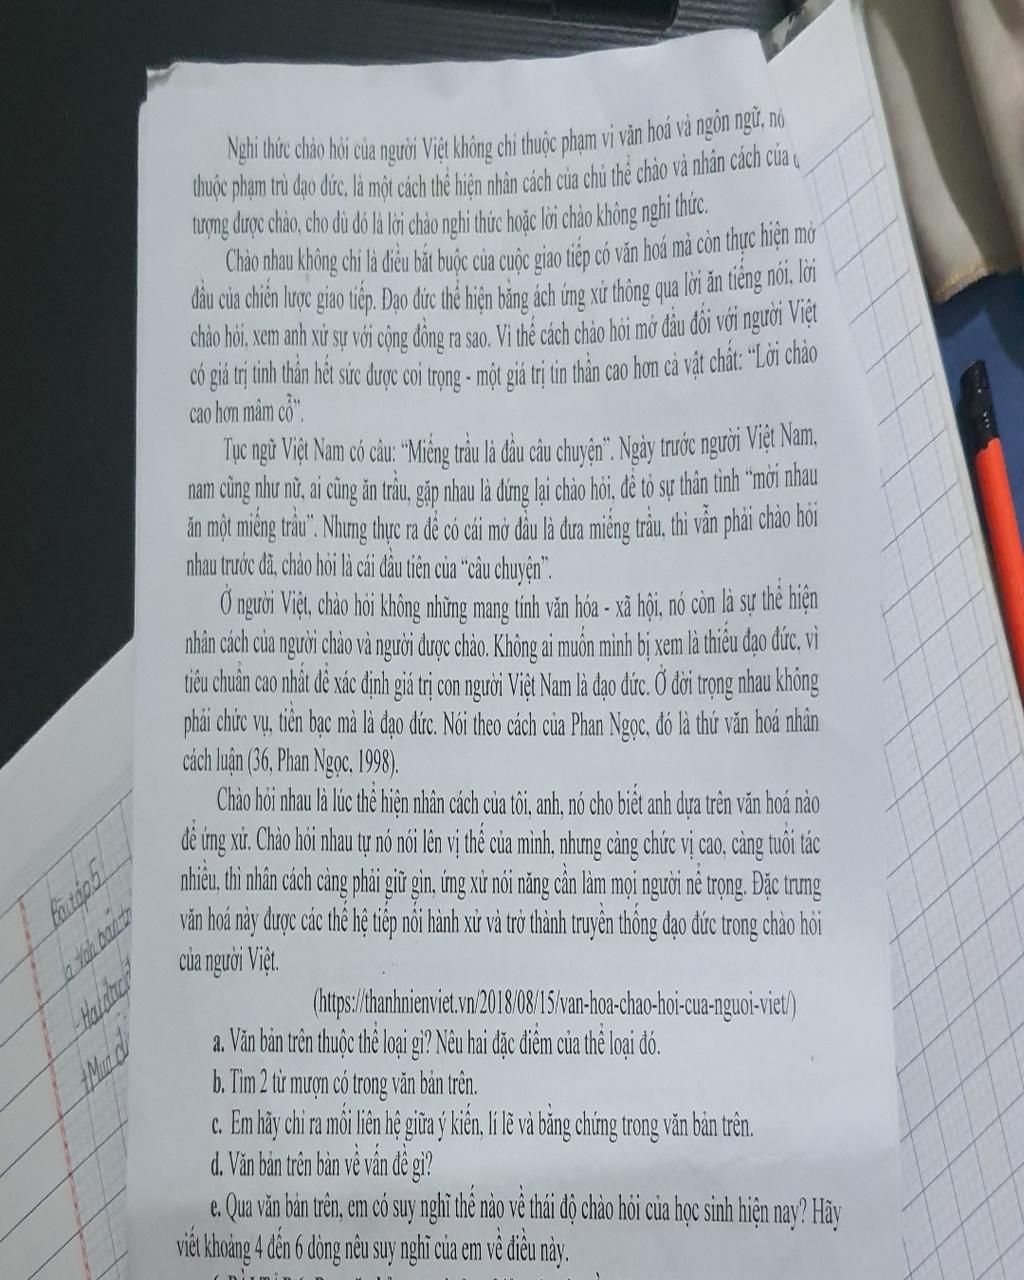 Nghi thức chào hỏi của người Việt không chỉ thuộc phạm vi văn hoá và ngôn ngữ, nó
thuộc phạm trù đạo đức, là một cách thể hiện nhân cách của chủ thể chào và nhân cách của
tượng được chào, cho dù đó là lời chào nghi thức hoặc lời chào không nghi thức.
Chào nhau không chỉ là điều bắt buộc của cuộc giao tiếp có văn hoá mà còn thực hiện mở
đầu của chiến lược giao tiếp. Đạo đức thể hiện bằng ách ứng xử thông qua lời ăn tiếng nói, lời
chào hỏi, xem anh xử sự với cộng đồng ra sao. Vì thế cách chào hỏi mở đầu đối với người Việt
có giá trị tinh thần hết sức được coi trọng - một giá trị tin thần cao hơn cả vật chất: “Lời chào
cao hơn mâm cỗ”.
Tục ngữ Việt Nam có câu: “Miếng trầu là đầu câu chuyện”. Ngày trước người Việt Nam,
nam cũng như nữ, ai cũng ăn trầu, gặp nhau là đứng lại chào hỏi, để tỏ sự thân tình “mời nhau
ăn một miếng trầu”. Nhưng thực ra để có cái mở đầu là đưa miếng trầu, thì vẫn phải chào hỏi
nhau trước đã, chào hỏi là cái đầu tiên của “câu chuyện”.
Ở người Việt, chào hỏi không những mang tính văn hóa - xã hội, nó còn là sự thể hiện
nhân cách của người chào và người được chào. Không ai muốn mình bị xem là thiếu đạo đức, vì
tiêu chuẩn cao nhất để xác định giá trị con người Việt Nam là đạo đức. Ở đời trọng nhau không
phải chức vụ, tiền bạc mà là đạo đức. Nói theo cách của Phan Ngọc, đó là thứ văn hoá nhân
cách luận (36, Phan Ngọc, 1998).
Chào hỏi nhau là lúc thể hiện nhân cách của tôi, anh, nó cho biết anh dựa trên văn hoá nào
để ứng xử. Chào hỏi nhau tự nó nói lên vị thế của mình, nhưng càng chức vị cao, càng tuổi tác
nhiều, thì nhân cách càng phải giữ gìn, ứng xử nói năng cần làm mọi người nể trọng. Đặc trưng
văn hoá này được các thế hệ tiếp nối hành xử và trở thành truyền thống đạo đức trong chào hỏi
của người Việt.
(https://thanhnienviet.vn/2018/08/15/van-hoa-chao-hoi-cua-nguoi-viet/)
a. Văn bản trên thuộc thể loại gì? Nêu hai đặc điểm của thể loại đó.
b. Tìm 2 từ mượn có trong văn bản trên.
c. Em hãy chỉ ra mối liên hệ giữa ý kiến, lí lẽ và bằng chứng trong văn bản trên.
d. Văn bản trên bàn về vấn đề gì?
e. Qua văn bản trên, em có suy nghĩ thế nào về thái độ chào hỏi của học sinh hiện nay? Hãy
viết khoảng 4 đến 6 dòng nêu suy nghĩ của em về điều này.
Bài tập 5
a. Văn bản
- Hai đặc